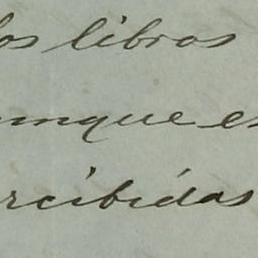 los libros
unque es
rcibidas